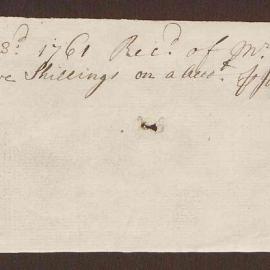 3d 1761 Recd of Mr
Shillings on acct